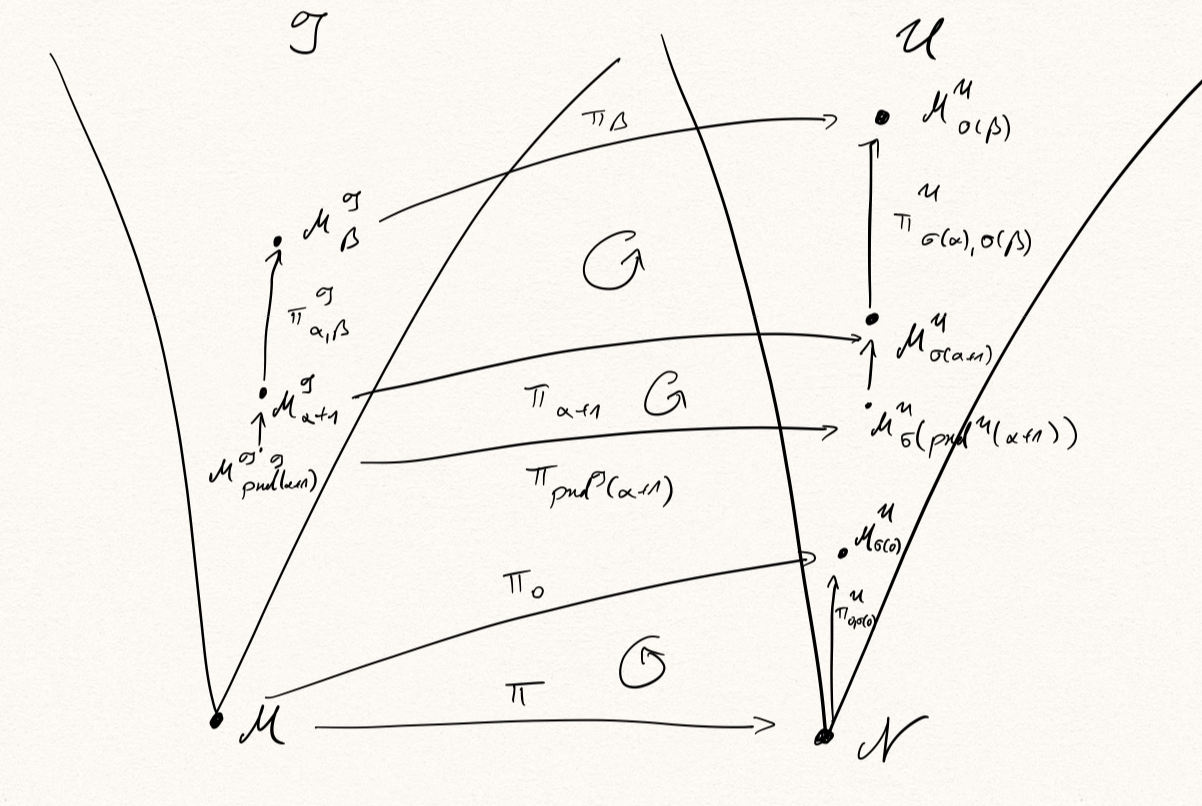 𝒯 𝒰
π_β ℳ^𝒰_{σ(β)}
ℳ^𝒯_β π^𝒰_{σ(α),σ(β)}
π^𝒯_{α,β}
ℳ^𝒰_{σ(α+1)}
ℳ^𝒯_{α+1} π_{α+1} ℳ^𝒰_{σ(pred^𝒰(α+1))}
ℳ^𝒯_{pred^𝒯(α+1)} π_{pred^𝒯(α+1)}
ℳ^𝒰_{σ(0)}
π_0 π^𝒰_{0,σ(0)}
π
ℳ 𝒩